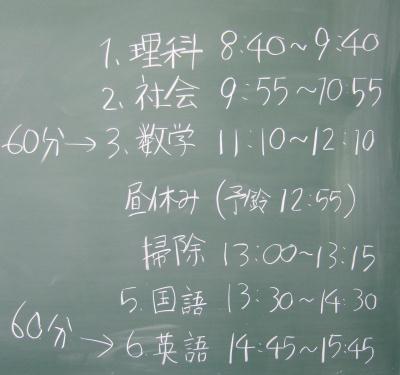 1. 理科 8:40~9:40
2. 社会 9:55~10:55
60分→3. 数学 11:10~12:10
昼休み (予鈴 12:55)
掃除 13:00~13:15
5. 国語 13:30~14:30
60分→6. 英語 14:45~15:45